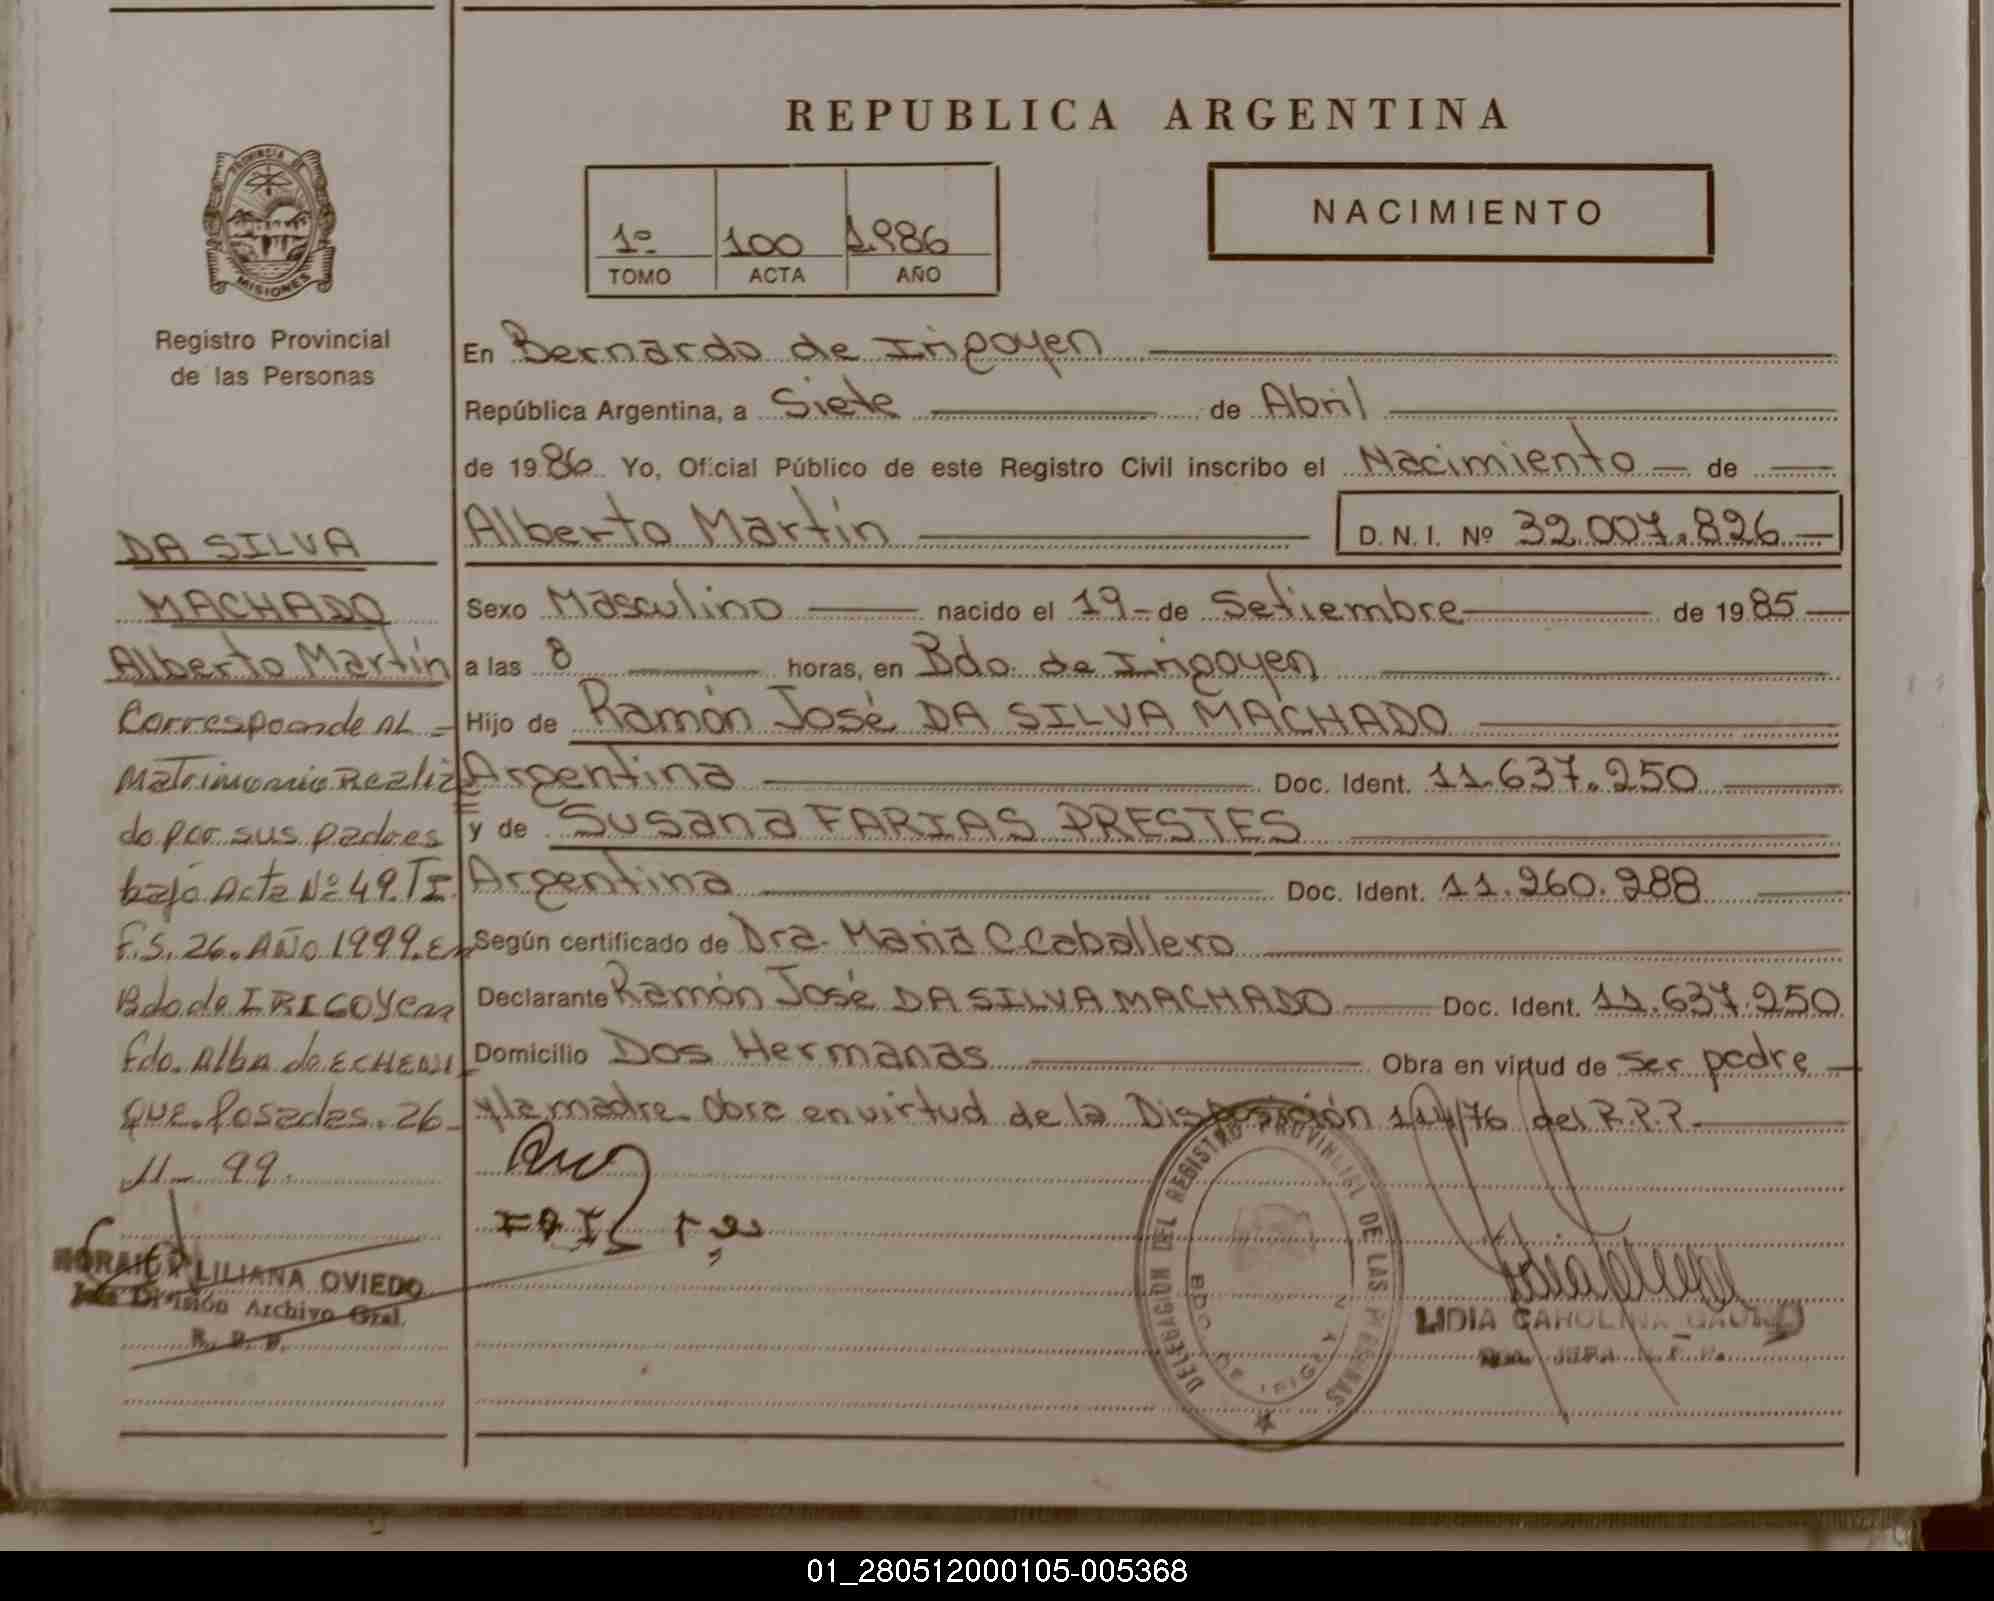 REPUBLICA ARGENTINA
NACIMIENTO
1º 100 1.986
TOMO ACTA AÑO
PROVINCIA DE
MISIONES
Registro Provincial
de las Personas
En Bernardo de Irigoyen
República Argentina, a Siete de Abril
de 1986 Yo, Oficial Público de este Registro Civil inscribo el Nacimiento de
Alberto Martín D. N. I. Nº 32.007.826
Sexo Masculino nacido el 19 de Setiembre de 1985
a las 8 horas, en Bdo. de Irigoyen
Hijo de Ramón José DA SILVA MACHADO
Argentina Doc. Ident. 11.637.250
y de Susana FARIAS PRESTES
Argentina Doc. Ident. 11.260.288
Según certificado de Dra. Maria C Caballero
Declarante Ramón José DA SILVA MACHADO Doc. Ident. 11.637.250
Domicilio Dos Hermanas Obra en virtud de ser padre
y la madre obra en virtud de la Disposición 114/76 del R.P.P.
DA SILVA
MACHADO
Alberto Martín
Corresponde AL
Matrimonio Realiz
do por sus padres
bajo Acta Nº 49. TI
F.S. 26. AÑO 1999. En
Bdo de IRIGOYen
fdo. Alba de ECHENI
QUE. Posadas. 26
11 - 99.
LILIANA OVIEDO
División Archivo Gral.
R. P. P.
DELEGACION DEL REGISTRO PROVINCIAL DE LAS PERSONAS
BDO. DE
LIDIA CAROLINA
01_280512000105-005368